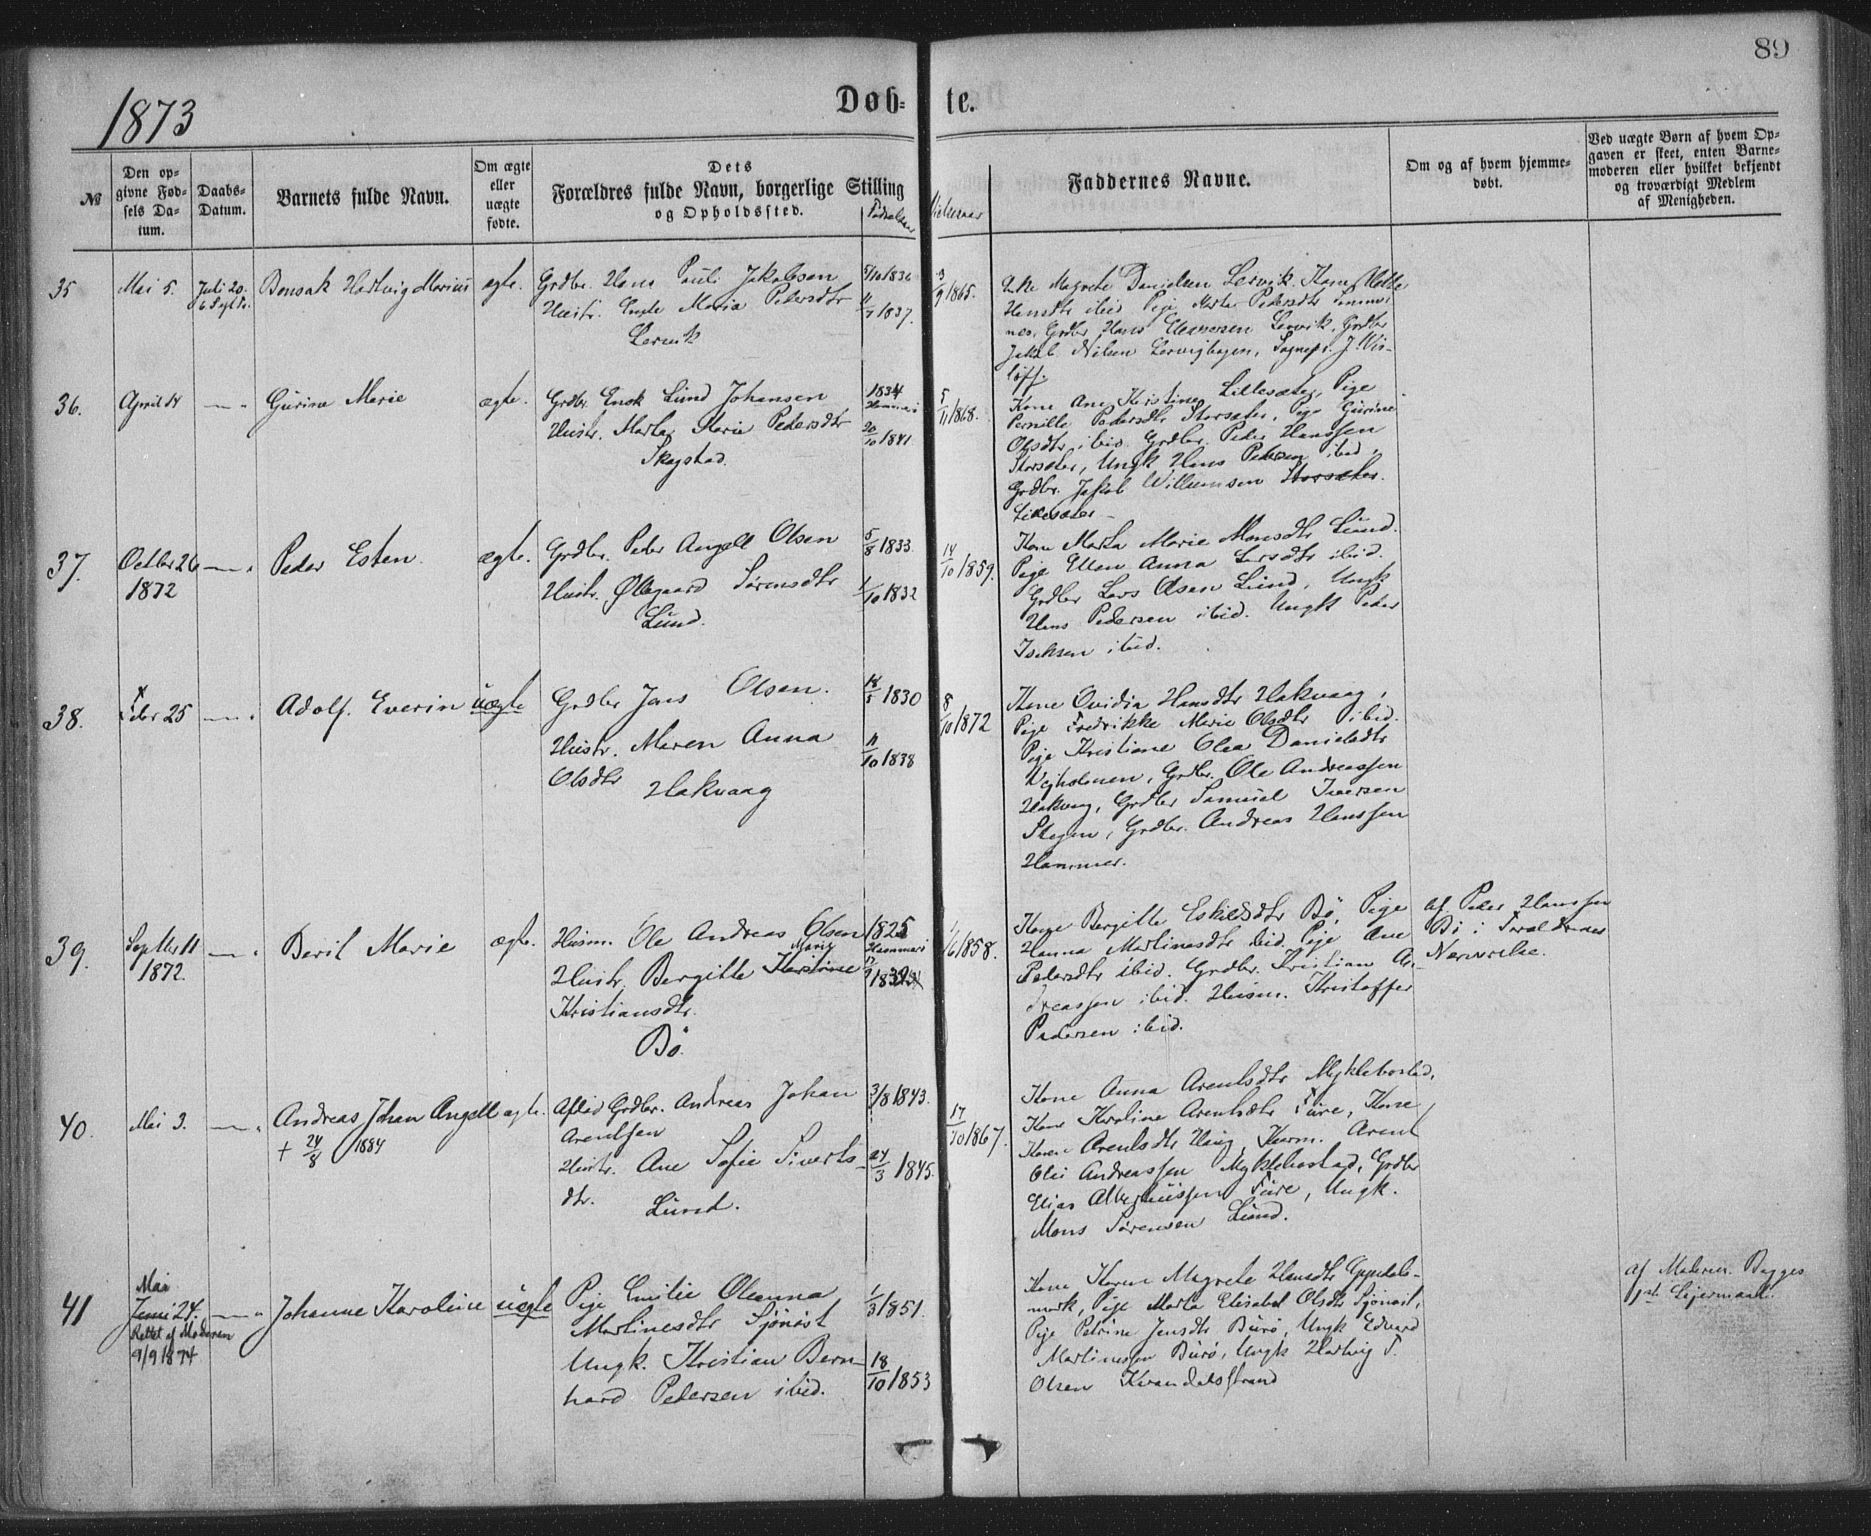 89
1873
Døb- te.
№
Den op-
givne Fød-
sels Da-
tum.
Daabs-
Datum.
Barnets fulde Navn.
Om ægte
eller
uægte
fødte.
Dets
Forældres fulde Navn, borgerlige Stilling
og Opholdssted.
Faddernes Navne.
Om og af hvem hjemme-
døbt.
Ved uægte Børn af hvem Op-
gaven er skeet, enten Barne-
moderen eller hvilket bekjendt
og troværdigt Medlem
af Menigheden.
35
Mai 5.
Juli 20.
Bonsak Hartvig Marius
ægte.
Grdbr. Hans Pauli Jakobsen
Hustr. Maria Pedersdtr
Lervik
5/10 1836
11/7 1837.
3/9 1865.
Enke Magrete Danielsen Lervik. Kone
Hansdtr ibid Pige Marta Pedersdtr
nes, Grdbr Hans Lervik, Grdbr
Jakob Nilsen Lervighagen, Sognepr. J. Wis-
løff.
36.
April 14
Gurine Marie
ægte.
Grdbr. Enok Lund Johansen
Hustr. Marta Marie Pedersdtr
Skagstad.
1834
Hammerø
20/10 1841
5/11 1868.
Kone Ane Kristine Lillesæter, Pige
Pernille Pedersdtr Storsæter, Pige Gurine
Olsdtr ibid. Grdbr. Peder Hanssen
Storsæter, Ungk Hans Pedersen ibid,
Grdbr. Jakob Willumsen Storsæter.
Lillesæter
37.
Octbr 26
1872
Peder Esten
ægte.
Grdbr. Peder Angell Olsen
Hustr. Ollegaard Sørensdtr
Lund.
5/8 1833
1/10 1832
14/10 1859.
Kone Marta Marie Monsdtr Lund.
Pige Ellen Anna Larsdtr ibid.
Grdbr Lars Olsen Lund, Ungk
Hans Pedersen ibid. Ungk Peder
Isaksen ibid.
38.
Febr 25
Adolf Everin
uægte
Grdbr Jens Olsen.
Hustr. Maren Anna
Olsdtr
Hakvaag
14/5 1830
11/10 1838
8/10 1872
Kone Ovidia Hansdtr Hakvaag,
Pige Fredrikke Marie Olsdtr ibid.
Pige Kristiane Olea Danielsdtr
Vejholmen, Grdbr. Ole Andreassen
Hakvaag, Grdbr Samuel Iversen
Skagen, Grdbr. Andreas Hanssen
Hammer.
39.
Septbr 11
1872.
Beril Marie
ægte.
Husm. Ole Andreas Olsen
Marie
Hustr. Bergitte Kristine
Kristiansdtr.
Bø.
1825
Hammerø
1/6 1858.
Kone Bergitte Eskildsdtr Bø, Pige
Hanna Martinesdtr ibid. Pige Ane
Pedersdtr ibid. Grdbr. Kristian An-
dreassen ibid. Husm. Kristoffer
Pedersen ibid.
af Peder Hanssen
Bø i Forældrenes
Nærværelse.
40.
Mai 3.
Andreas Johan Angell
+ 24/8 1884
ægte.
Afled Grdbr. Andreas Johan
Arentsen
Hustr. Ane Sofie Siverts-
dtr.
Lund.
3/8 1843.
24/3 1845.
17/10 1867.
Kone Anna Arentsdtr Myklebostad,
Kone Karoline Arentsdtr Fure, Kone
Karen Arentsdtr Haug, Kaarm. Arent
Oluf Andreassen Myklebostad, Grdbr
Elias Albegniussen Fure, Ungk.
Mons Sørensen Lund.
41
Mai
Juni 24.
Rettet af Moderen
9/9 1874
Johanne Karoline
uægte
Pige Emilie Oleanna
Martinesdtr Sjønøst
Ungk. Kristian Bern-
hard Pedersen ibid.
1/3 1851.
18/10 1853
Kone Karen Magrete Hansdtr Gypedals-
mark, Pige Marta Elisabet Olsdtr Sjønøst,
Pige Petrine Jensdtr Burø, Ungk Edvard
Martinussen Burø, Ungk Hartvig T.
Olsen Kvandalsstrand
af Moderen. Begges
1ste Lejermaal.